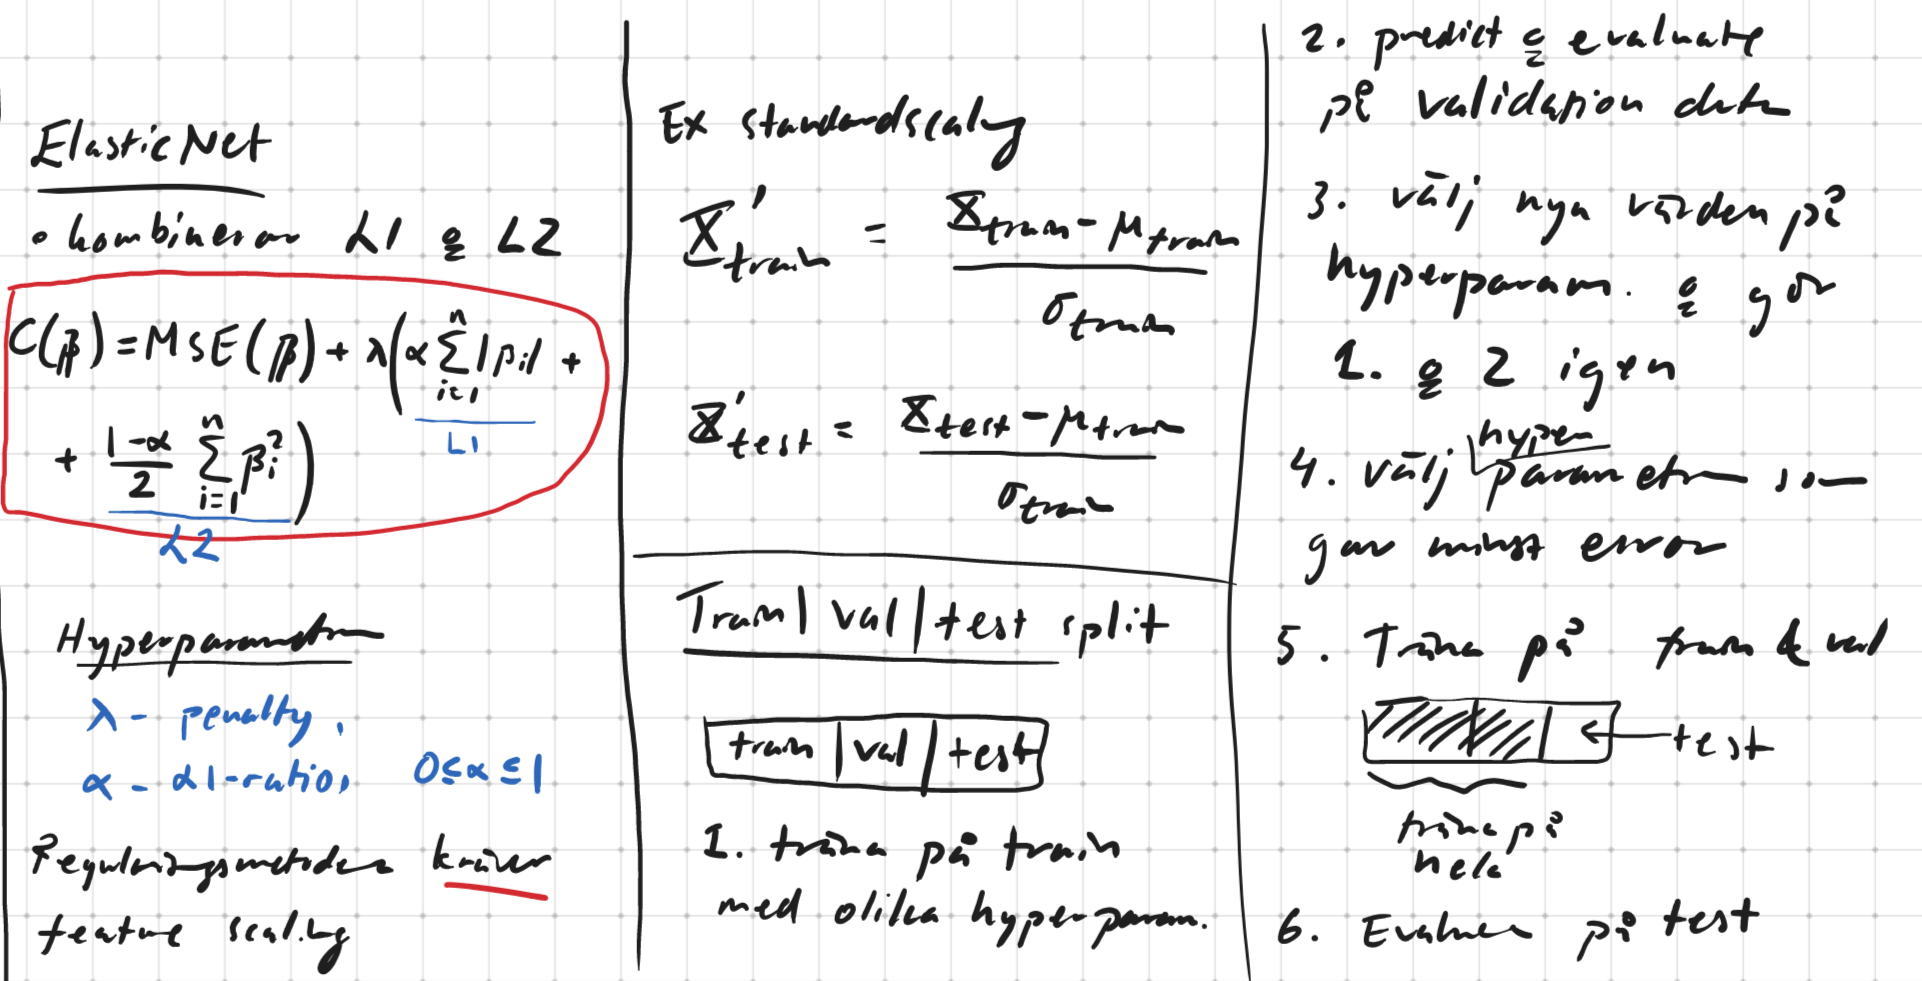 ElasticNet
• kombinerar L1 & L2
C(β) = MSE(β) + λ(α ∑ᵢ₌₁ⁿ |βᵢ| +
L1
+ (1-α)/2 ∑ᵢ₌₁ⁿ βᵢ²)
L2
Hyperparametrar
λ - penalty,
α - L1-ratio, 0 ≤ α ≤ 1
Regulariseringsmetoden kräver
feature scaling
Ex standardscaling
X'train = (Xtrain - μtrain) / σtrain
X'test = (Xtest - μtrain) / σtrain
Train | val | test split
train | val | test
1. träna på train
med olika hyperparam.
2. predict & evaluate
på validation data
3. välj nya värden på
hyperparam. & gör
1. & 2 igen
hyper
4. välj parametrar som
gav minst error
5. Träna på train & val
← test
träna på
hela
6. Evaluera på test